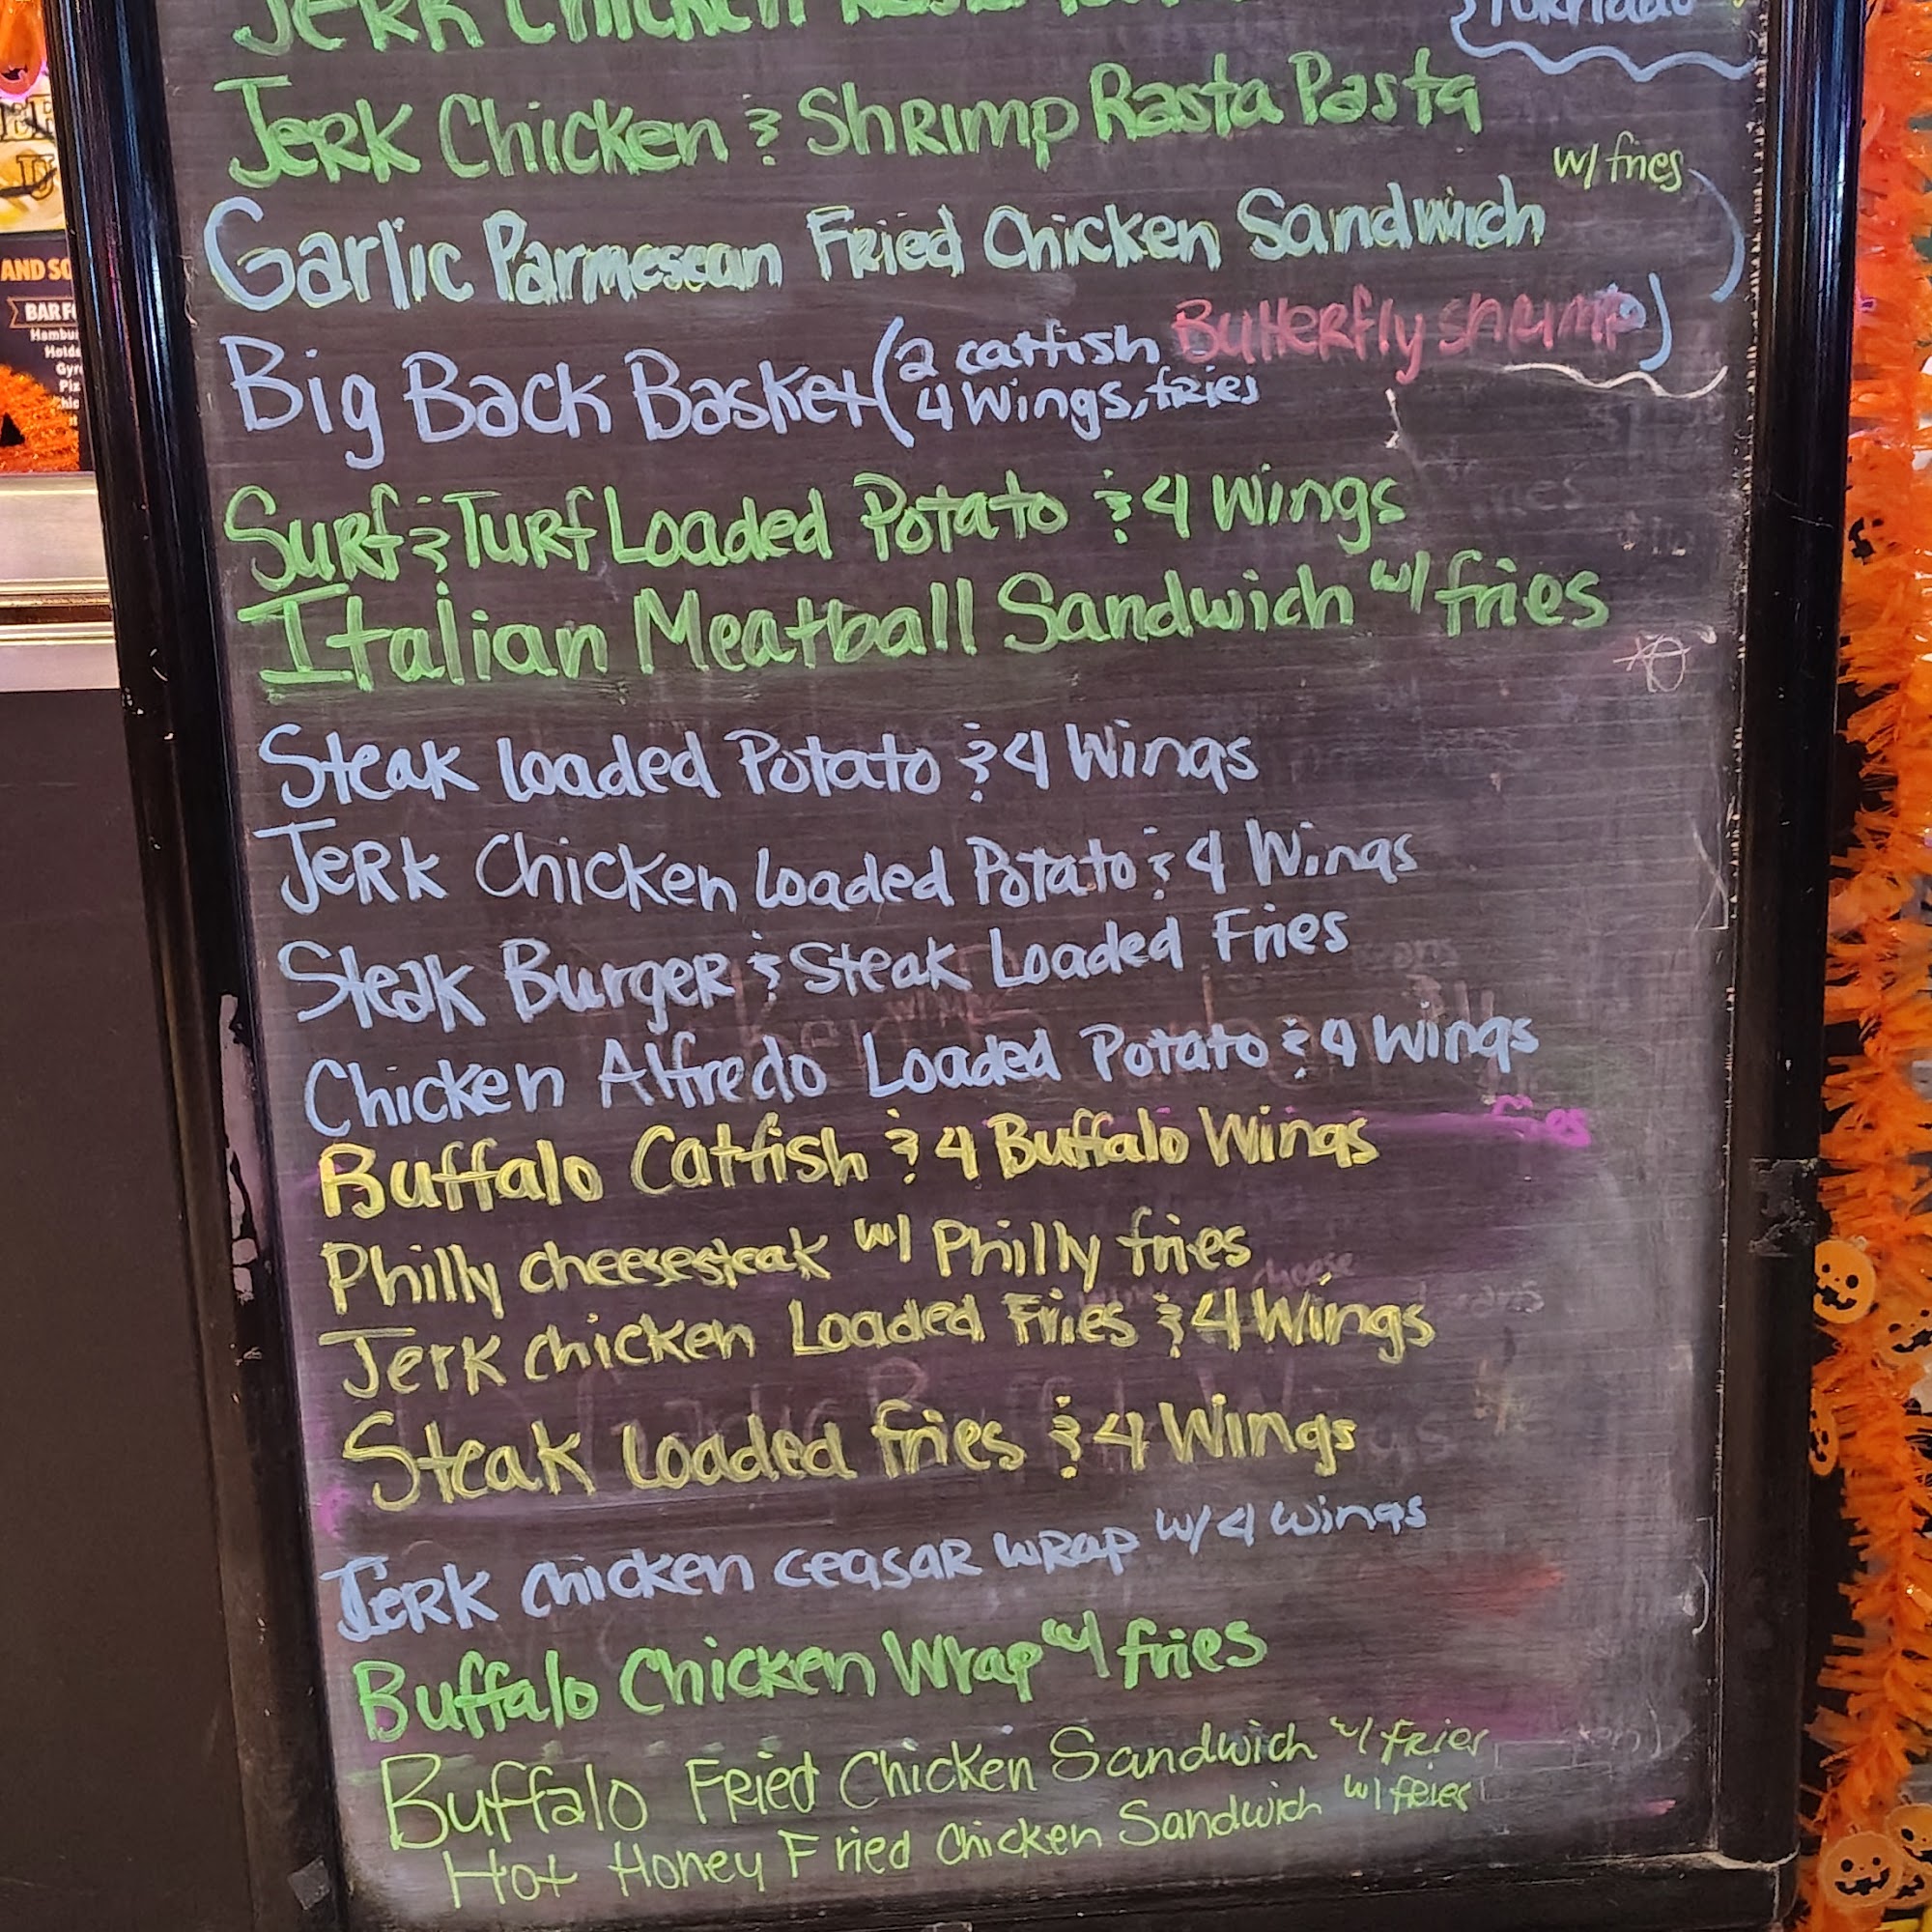 Jerk Chicken Rasta
Tornado
Jerk Chicken & Shrimp Rasta Pasta
w/ fries
Garlic Parmesean Fried Chicken Sandwich
Big Back Basket (2 catfish Butterfly shrimp)
4 Wings, fries
Surf & Turf Loaded Potato & 4 Wings
Italian Meatball Sandwich w/ fries
Steak Loaded Potato & 4 Wings
Jerk Chicken Loaded Potato & 4 Wings
Steak Burger & Steak Loaded Fries
Chicken Alfredo Loaded Potato & 4 Wings
Buffalo Catfish & 4 Buffalo Wings
Philly cheesesteak w/ Philly fries
Jerk chicken Loaded Fries & 4 Wings
Steak Loaded fries & 4 Wings
Jerk chicken ceasar wrap w/ 4 wings
Buffalo Chicken Wrap w/ fries
Buffalo Fried Chicken Sandwich w/ fries
Hot Honey Fried Chicken Sandwich w/ fries
AND
BAR